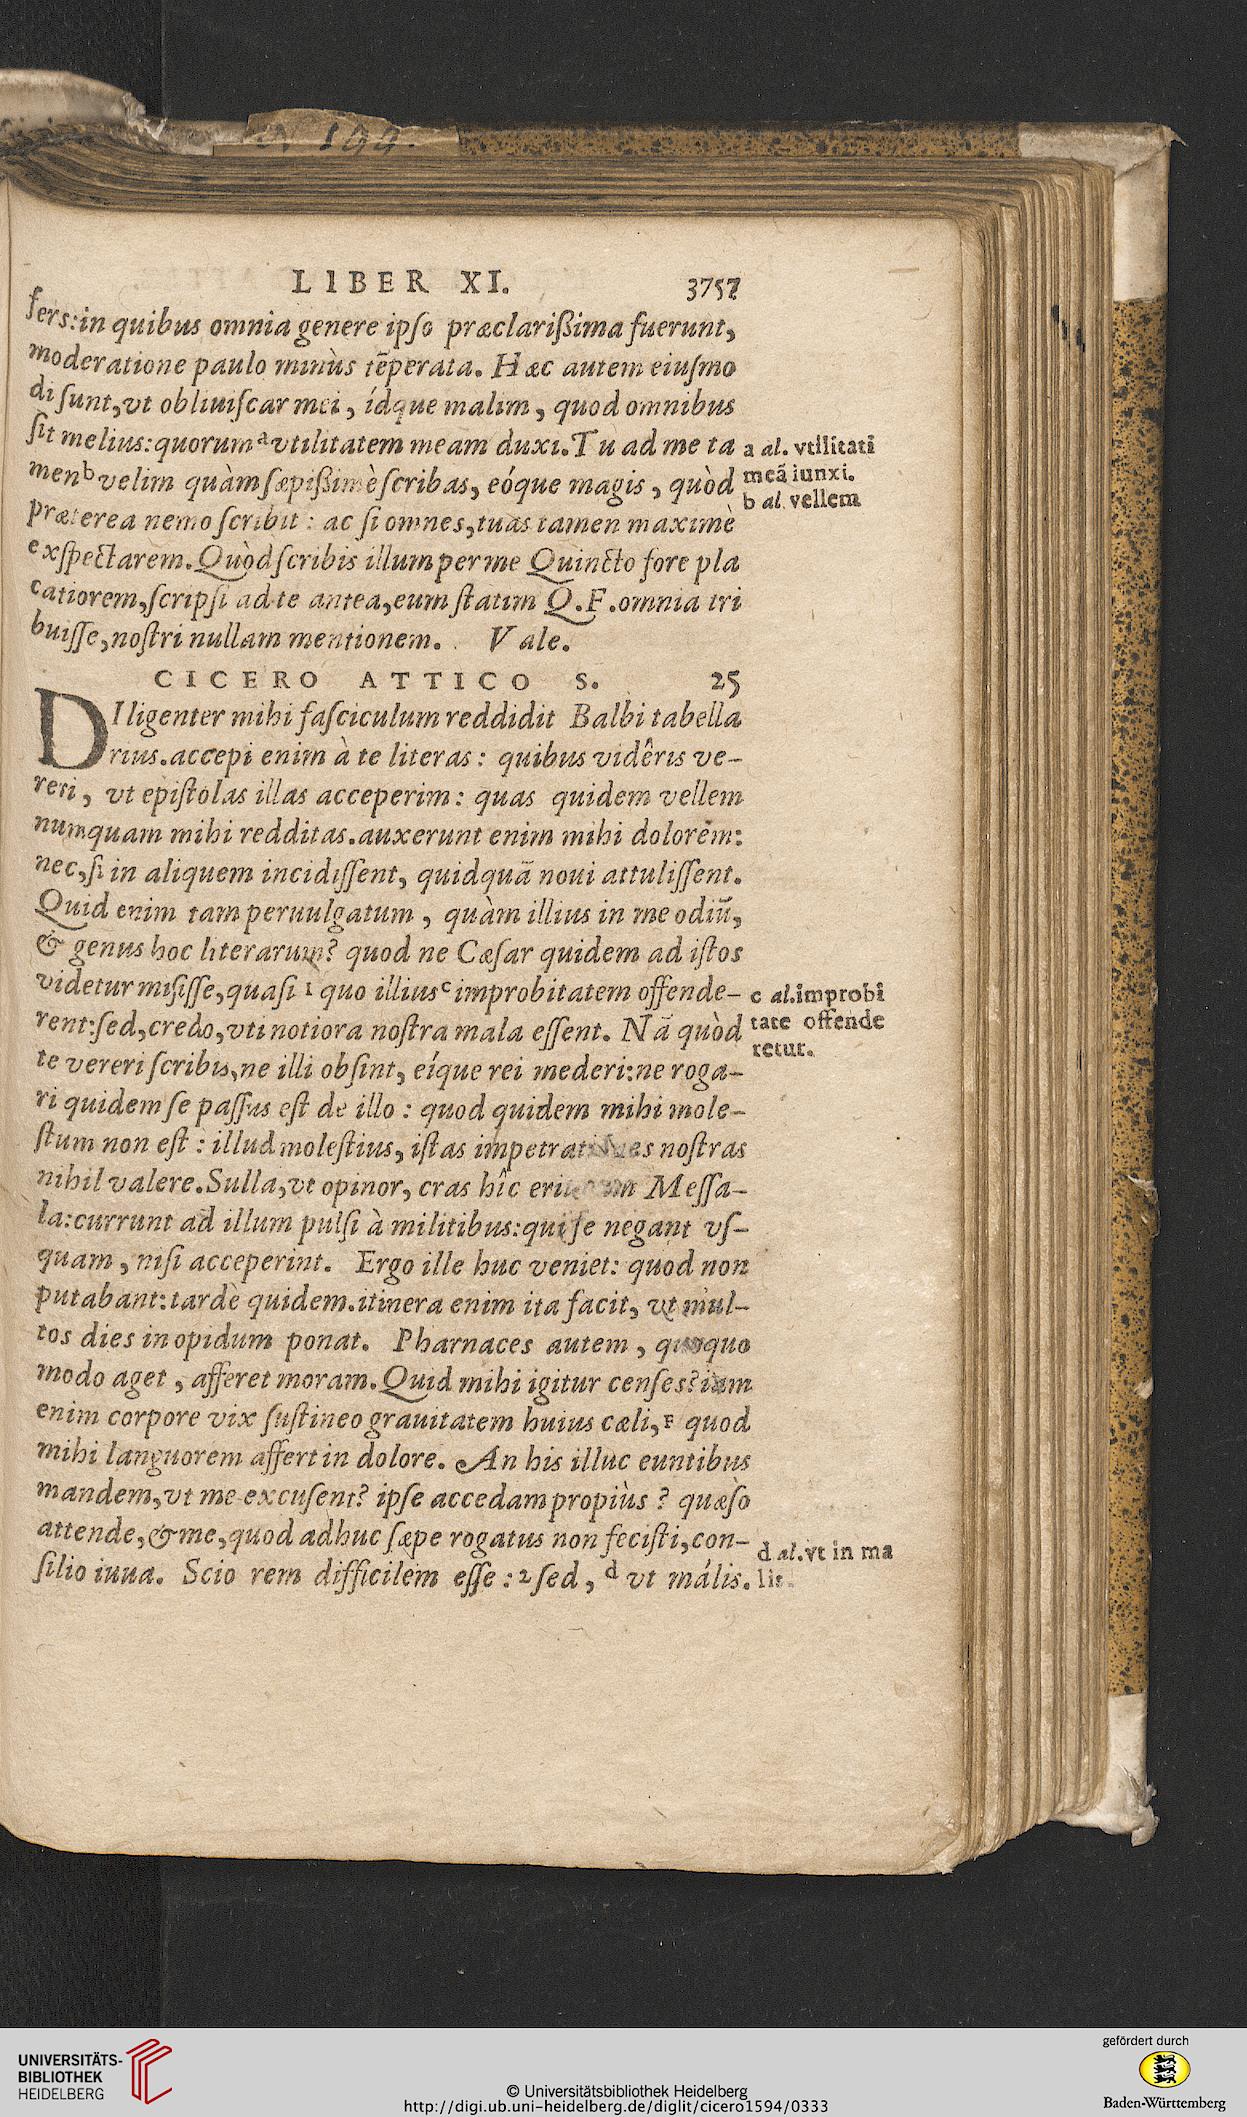 199.
LIBER XI. 3757
fers:in quibus omnia genere ipſo præclarißima fuerunt,
moderatione paulo minùs tēperata. Hæc autem eiuſmo
di ſunt,vt obliuiſcar mei, ídque malim, quod omnibus
ſit melius:quorum a vtilitatem meam duxi.Tu ad me ta
men b velim quàm ſæpißimè ſcribas, eóque magis, quòd
præterea nemo ſcribit: ac ſi omnes,tuas tamen maximè
exſpectarem.Quòd ſcribis illum per me Quincto fore pla
catiorem,ſcripſi ad te antea,eum ſtatim Q.F.omnia tri
buiſſe,noſtri nullam mentionem. Vale.
a al. vtilitati
meã iunxi.
b al. vellem
CICERO ATTICO S. 25
DIligenter mihi faſciculum reddidit Balbi tabella
rius.accepi enim à te literas: quibus vidêris ve-
reri, vt epiſtolas illas acceperim: quas quidem vellem
numquam mihi redditas.auxerunt enim mihi dolorem:
nec,ſi in aliquem incidiſſent, quidquã noui attuliſſent.
Quid enim tam peruulgatum, quàm illius in me odiū,
& genus hoc literarum? quod ne Cæſar quidem ad iſtos
videtur miſiſſe,quaſi 1 quo illius c improbitatem offende-
rent:ſed,credo,vti notiora noſtra mala eſſent. Nã quòd
te vereri ſcribis,ne illi obſint, eíque rei mederi:ne roga-
ri quidem ſe paſſus eſt de illo: quod quidem mihi mole-
ſtum non eſt: illud moleſtius, iſtas impetrationes noſtras
nihil valere.Sulla,vt opinor, cras hîc Meſſa-
la:currunt ad illum pulſi à militibus:qui ſe negant vſ-
quam, niſi acceperint. Ergo ille huc veniet: quod non
putabant:tardè quidem.itinera enim ita facit, vt mul-
tos dies in opidum ponat. Pharnaces autem, quoquo
modo aget, afferet moram.Quid mihi igitur cenſes? iam
enim corpore vix ſuſtineo grauitatem huius cæli,F quod
mihi languorem affert in dolore. An his illuc euntibus
mandem,vt me excuſent? ipſe accedam propiùs? quæſo
attende,& me,quod adhuc ſæpe rogatus non feciſti,con-
ſilio iuua. Scio rem difficilem eſſe: 2 ſed, d vt in mális.
c al.improbi
tate offende
retur.
d al.vt in ma
lis.
UNIVERSITÄTS-
BIBLIOTHEK
HEIDELBERG
© Universitätsbibliothek Heidelberg
http://digi.ub.uni-heidelberg.de/diglit/cicero1594/0333
gefördert durch
Baden-Württemberg